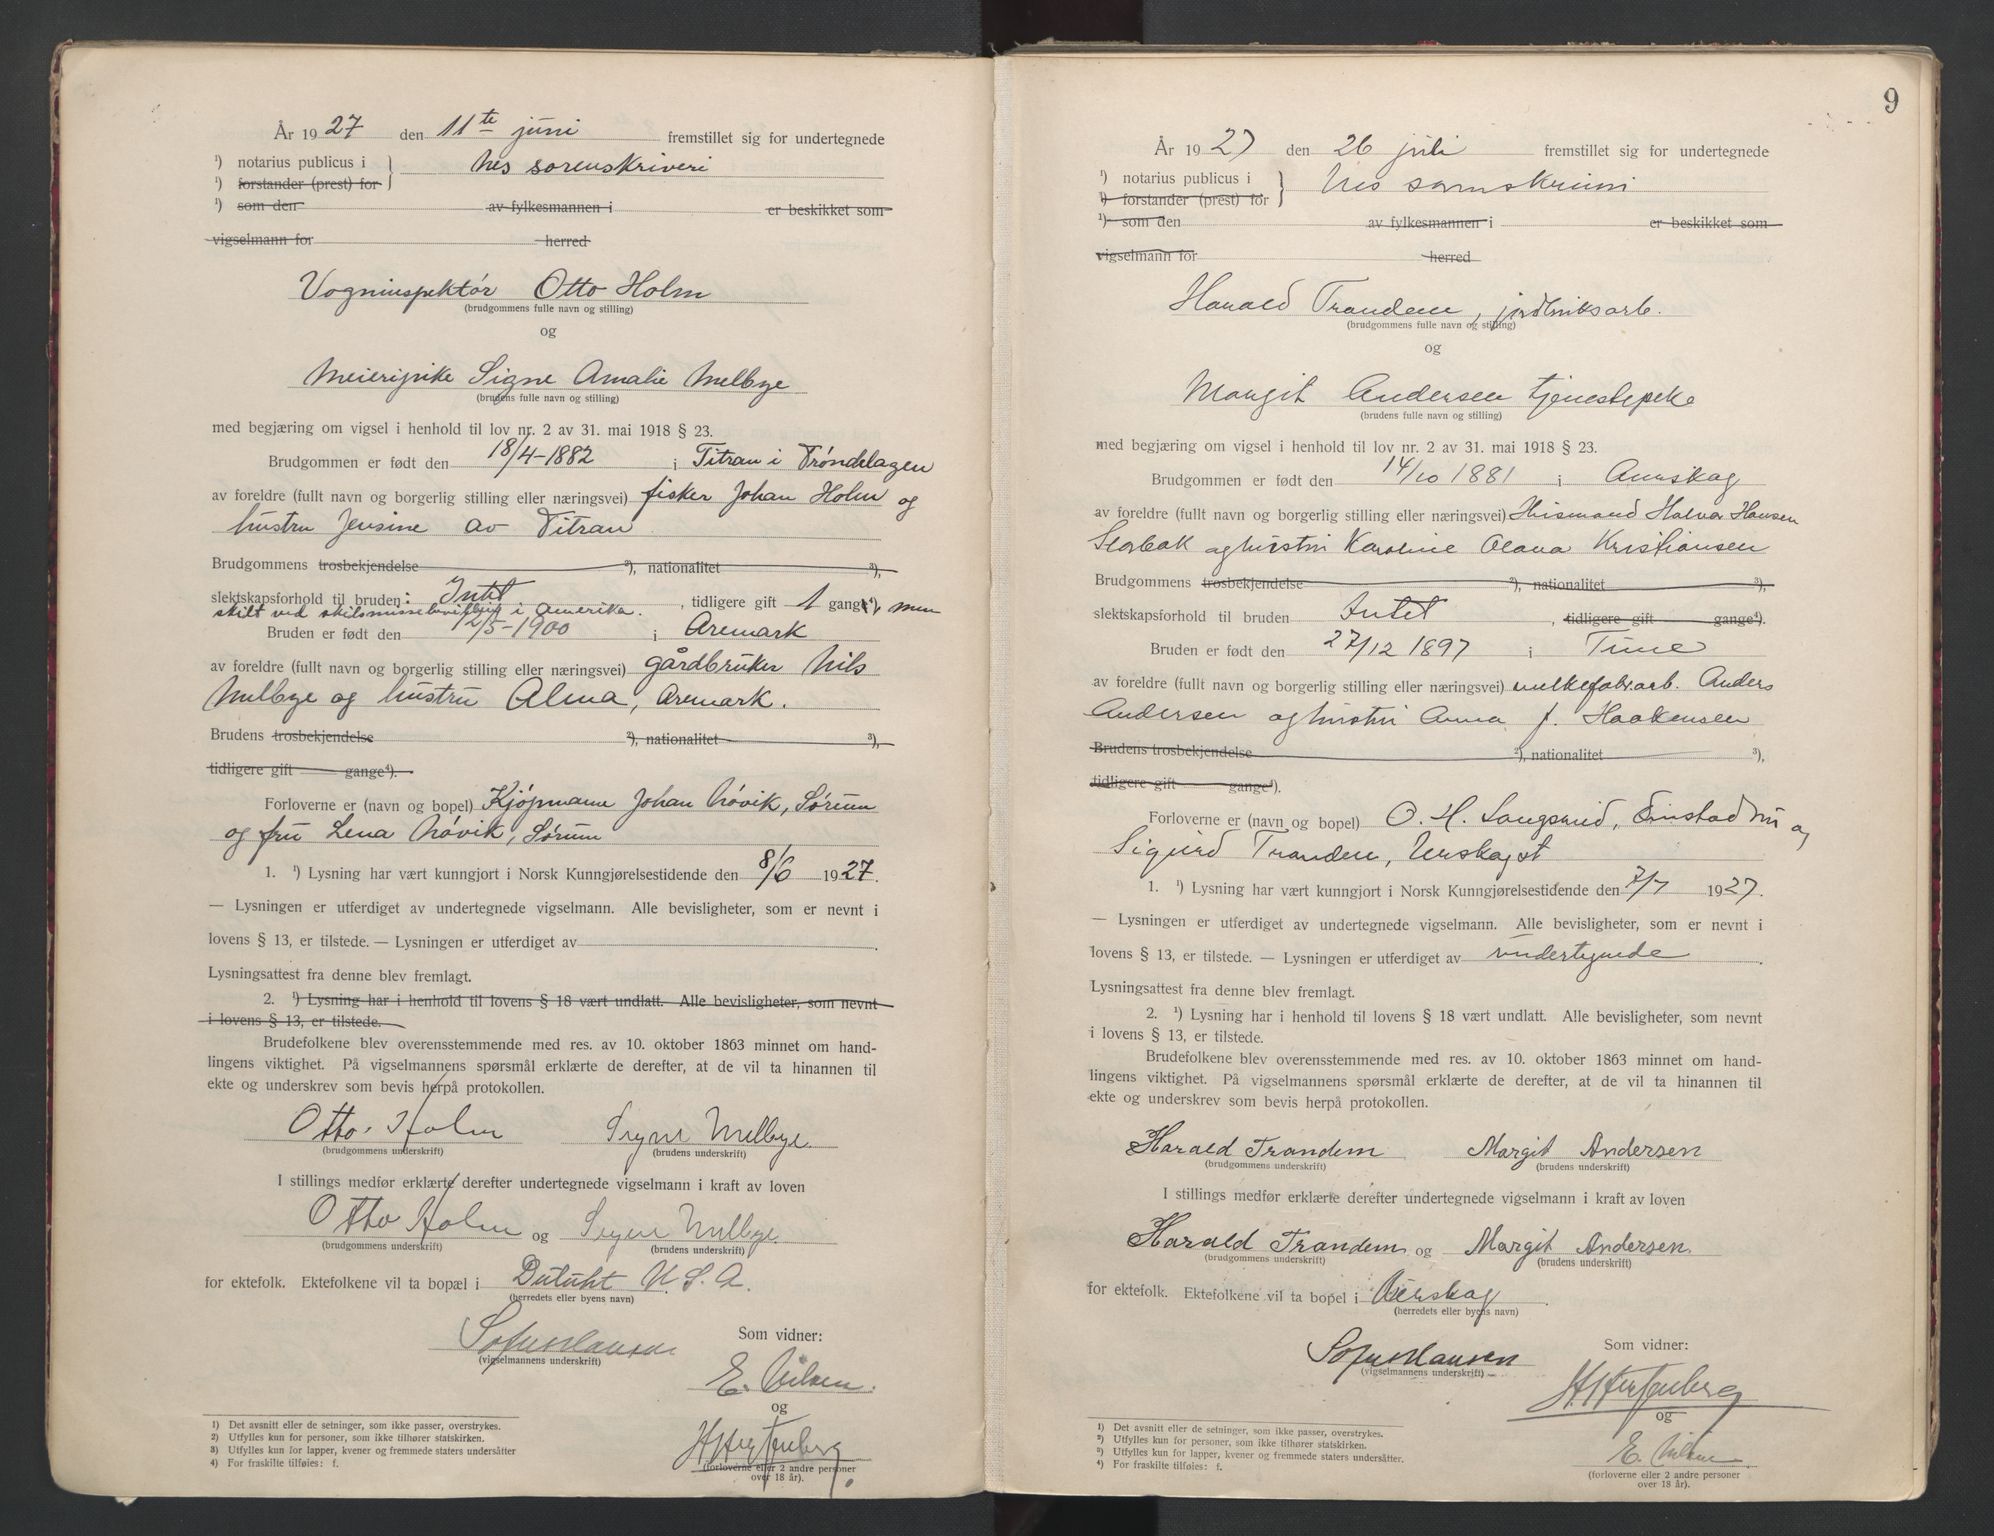 År 1927 den 11te juni fremstillet sig for undertegnede
¹) notarius publicus i } Nes sorenskriveri
¹) forstander (prest) for
¹) som den av fylkesmannen i er beskikket som
vigselmann for herred
Vogninspektør Otto Holm
(brudgommens fulle navn og stilling)
og
Meieripike Signe Amalie Melbye
(brudens fulle navn og stilling)
med begjæring om vigsel i henhold til lov nr. 2 av 31. mai 1918 § 23.
Brudgommen er født den 18/4-1882 i Titran i Trøndelagen
av foreldre (fullt navn og borgerlig stilling eller næringsvei) fisker Johan Holm og
hustru Jensine av Titran
Brudgommens trosbekjendelse ²), nationalitet ³),
slektskapsforhold til bruden: Intet , tidligere gift 1 gang⁴), men
skilt ved skilsmissebevilling i Amerika.
Bruden er født den 12/5-1900 i Aremark
av foreldre (fullt navn og borgerlig stilling eller næringsvei) gårdbruker Nils
Melbye og hustru Alma, Aremark.
Brudens trosbekjendelse ²), nationalitet ³),
tidligere gift gange⁴).
Forloverne er (navn og bopel) Kjøpmann Johan Nøvik, Sørum
og fru Lena Nøvik, Sørum
1. ¹) Lysning har vært kunngjort i Norsk Kunngjørelsestidende den 8/6 1927.
— Lysningen er utferdiget av undertegnede vigselmann. Alle bevisligheter, som er nevnt i
lovens § 13, er tilstede. — Lysningen er utferdiget av .
Lysningsattest fra denne blev fremlagt.
2. ¹) Lysning har i henhold til lovens § 18 vært undlatt. Alle bevisligheter, som nevnt
i lovens § 13, er tilstede.
Brudefolkene blev overensstemmende med res. av 10. oktober 1863 minnet om hand-
lingens viktighet. På vigselmannens spørsmål erklærte de derefter, at de vil ta hinannen til
ekte og underskrev som bevis herpå protokollen.
Otto Holm Signe Melbye.
(brudgommens underskrift) (brudens underskrift)
I stillings medfør erklærte derefter undertegnede vigselmann i kraft av loven
Otto Holm og Signe Melbye.
(brudgommens underskrift) (brudens underskrift)
for ektefolk. Ektefolkene vil ta bopæl i Duluht U. S. A.
(herredets eller byens navn)
Sofus Hansen Som vidner:
(vigselmannens underskrift)
E. Nilsen.
og
(forloverne eller 2 andre personer
over 18 år).
1) Det avsnitt eller de setninger, som ikke passer, overstrykes.
2) Utfylles kun for personer, som ikke tilhører statskirken.
3) Utfylles kun for lapper, kvener og fremmede staters undersåtter
4) For fraskilte tilføies: f.
9
År 1927 den 26 juli fremstillet sig for undertegnede
¹) notarius publicus i } Nes sorenskriveri
¹) forstander (prest) for
¹) som den av fylkesmannen i er beskikket som
vigselmann for herred
Harald Trandem, jordbruksarb.
(brudgommens fulle navn og stilling)
og
Margit Andersen tjenestepike
(brudens fulle navn og stilling)
med begjæring om vigsel i henhold til lov nr. 2 av 31. mai 1918 § 23.
Brudgommen er født den 14/10 1881 i Aurskog
av foreldre (fullt navn og borgerlig stilling eller næringsvei) Husmand Halvor Hansen
Slorbak og hustru Karoline Olava Kristiansen
Brudgommens trosbekjendelse ²), nationalitet ³),
slektskapsforhold til bruden Intet , tidligere gift gange⁴).
Bruden er født den 27/12 1897 i Tune
av foreldre (fullt navn og borgerlig stilling eller næringsvei) melkefabr.arb. Anders
Andersen og hustru Anna f. Haakensen
Brudens trosbekjendelse ²), nationalitet ³),
tidligere gift gange⁴).
Forloverne er (navn og bopel) O. H. Langsrud, og
Sigurd Tranden,
1. ¹) Lysning har vært kunngjort i Norsk Kunngjørelsestidende den 7/7 1927.
— Lysningen er utferdiget av undertegnede vigselmann. Alle bevisligheter, som er nevnt i
lovens § 13, er tilstede. — Lysningen er utferdiget av undertegnede .
Lysningsattest fra denne blev fremlagt.
2. ¹) Lysning har i henhold til lovens § 18 vært undlatt. Alle bevisligheter, som nevnt
i lovens § 13, er tilstede.
Brudefolkene blev overensstemmende med res. av 10. oktober 1863 minnet om hand-
lingens viktighet. På vigselmannens spørsmål erklærte de derefter, at de vil ta hinannen til
ekte og underskrev som bevis herpå protokollen.
Harald Trandem Margit Andersen
(brudgommens underskrift) (brudens underskrift)
I stillings medfør erklærte derefter undertegnede vigselmann i kraft av loven
Harald Trandem og Margit Andersen.
(brudgommens underskrift) (brudens underskrift)
for ektefolk. Ektefolkene vil ta bopel i Aurskog .
(herredets eller byens navn)
Sofus Hansen Som vidner:
(vigselmannens underskrift)
og
E. Nilsen.
(forloverne eller 2 andre personer
over 18 år).
1) Det avsnitt eller de setninger, som ikke passer, overstrykes.
2) Utfylles kun for personer, som ikke tilhører statskirken.
3) Utfylles kun for lapper, kvener og fremmede staters undersåtter.
4) For fraskilte tilføies: f.